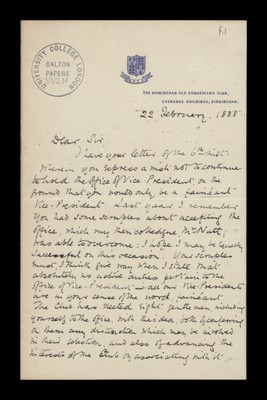 f1
UNIVERSITY COLLEGE LONDON
GALTON
PAPERS
THE BIRMINGHAM OLD EDWARDIANS CLUB,
EXCHANGE BUILDINGS, BIRMINGHAM.
22 February, 1888
Dear Sir,
I have your letter of the 6th inst:
wherein you express a wish not to continue
to hold the office of Vice-President, on the
ground that you would only be a fainéant
Vice-President. Last year I remember
you had some scruples about accepting the
office, which my then colleague Mr
was able to overcome: I hope I may be equally
successful on this occasion. Your scruples
must I think give way when I state that
absolutely no active duties pertain to the
office of Vice-President – all our Vice-Presidents
are in your sense of the word, fainéant.
The Club has elected eight gentlemen, including
yourself to the office, with this idea, both of conferring
on them any distinction which may be involved
in their selection, and also of advancing the
interests of the Club by associating with it